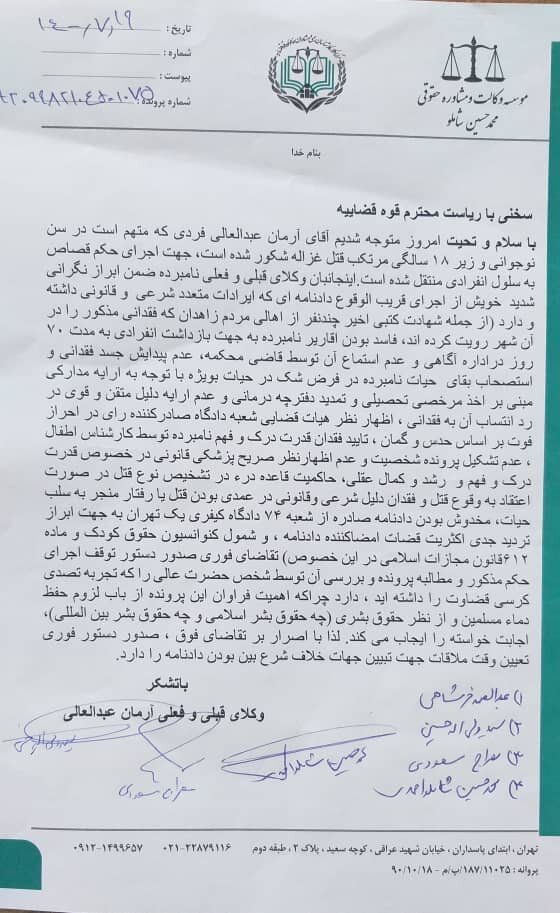 تاریخ : ۱۴۰۰/۷/۱۹
شماره :
پیوست :
شماره پرونده :
موسسه وکالت و مشاوره حقوقی
محمد حسین شاملو
بنام خدا
سخنی با ریاست محترم قوه قضاییه
با سلام و تحیت امروز متوجه شدیم آقای آرمان عبدالعالی فردی که متهم است در سن
نوجوانی و زیر ۱۸ سالگی مرتکب قتل غزاله شکور شده است، جهت اجرای حکم قصاص
به سلول انفرادی منتقل شده است.اینجانبان وکلای قبلی و فعلی نامبرده ضمن ابراز نگرانی
شدید خویش از اجرای قریب الوقوع دادنامه ای که ایرادات متعدد شرعی و قانونی داشته
و دارد (از جمله شهادت کتبی اخیر چندنفر از اهالی مردم زاهدان که فقدانی مذکور را در
آن شهر رویت کرده اند، فاسد بودن اقاریر نامبرده به جهت بازداشت انفرادی به مدت ۷۰
روز دراداره آگاهی و عدم استماع آن توسط قاضی محکمه، عدم پیدایش جسد فقدانی و
استصحاب بقای حیات نامبرده در فرض شک در حیات بویژه با توجه به ارایه مدارکی
مبنی بر اخذ مرخصی تحصیلی و تمدید دفترچه درمانی و عدم ارایه دلیل متقن و قوی در
رد انتساب آن به فقدانی ، اظهار نظر هیات قضایی شعبه دادگاه صادرکننده رای در احراز
فوت بر اساس حدس و گمان ، تایید فقدان قدرت درک و فهم نامبرده توسط کارشناس اطفال
، عدم تشکیل پرونده شخصیت و عدم اظهارنظر صریح پزشکی قانونی در خصوص قدرت
درک و فهم و رشد و کمال عقلی، حاکمیت قاعده درء در تشخیص نوع قتل در صورت
اعتقاد به وقوع قتل و فقدان دلیل شرعی وقانونی در عمدی بودن قتل یا رفتار منجر به سلب
حیات، مخدوش بودن دادنامه صادره از شعبه ۷۴ دادگاه کیفری یک تهران به جهت ابراز
تردید جدی اکثریت قضات امضاکننده دادنامه ، و شمول کنوانسیون حقوق کودک و ماده
۶۱۲قانون مجازات اسلامی در این خصوص) تقاضای فوری صدور دستور توقف اجرای
حکم مذکور و مطالبه پرونده و بررسی آن توسط شخص حضرت عالی را که تجربه تصدی
کرسی قضاوت را داشته اید ، دارد چراکه اهمیت فراوان این پرونده از باب لزوم حفظ
دماء مسلمین و از نظر حقوق بشری (چه حقوق بشر اسلامی و چه حقوق بشر بین المللی)،
اجابت خواسته را ایجاب می کند. لذا با اصرار بر تقاضای فوق ، صدور دستور فوری
تعیین وقت ملاقات جهت تبیین جهات خلاف شرع بین بودن دادنامه را دارد.
باتشکر
وکلای قبلی و فعلی آرمان عبدالعالی
۱) عبدالصمد خرمشاهی
۲)
۳) معراج سعودی
۴) محمد حسین شاملو احمدی
تهران ، ابتدای پاسداران ، خیابان شهید عراقی ، کوچه سعید ، پلاک ۲ ، طبقه دوم ۰۲۱-۲۲۸۷۹۱۱۶ ۰۹۱۲-۱۴۹۹۶۵۷
پروانه : ۱۸۷/۱۱۰۲۵/پ/م - ۹۰/۱۰/۱۸